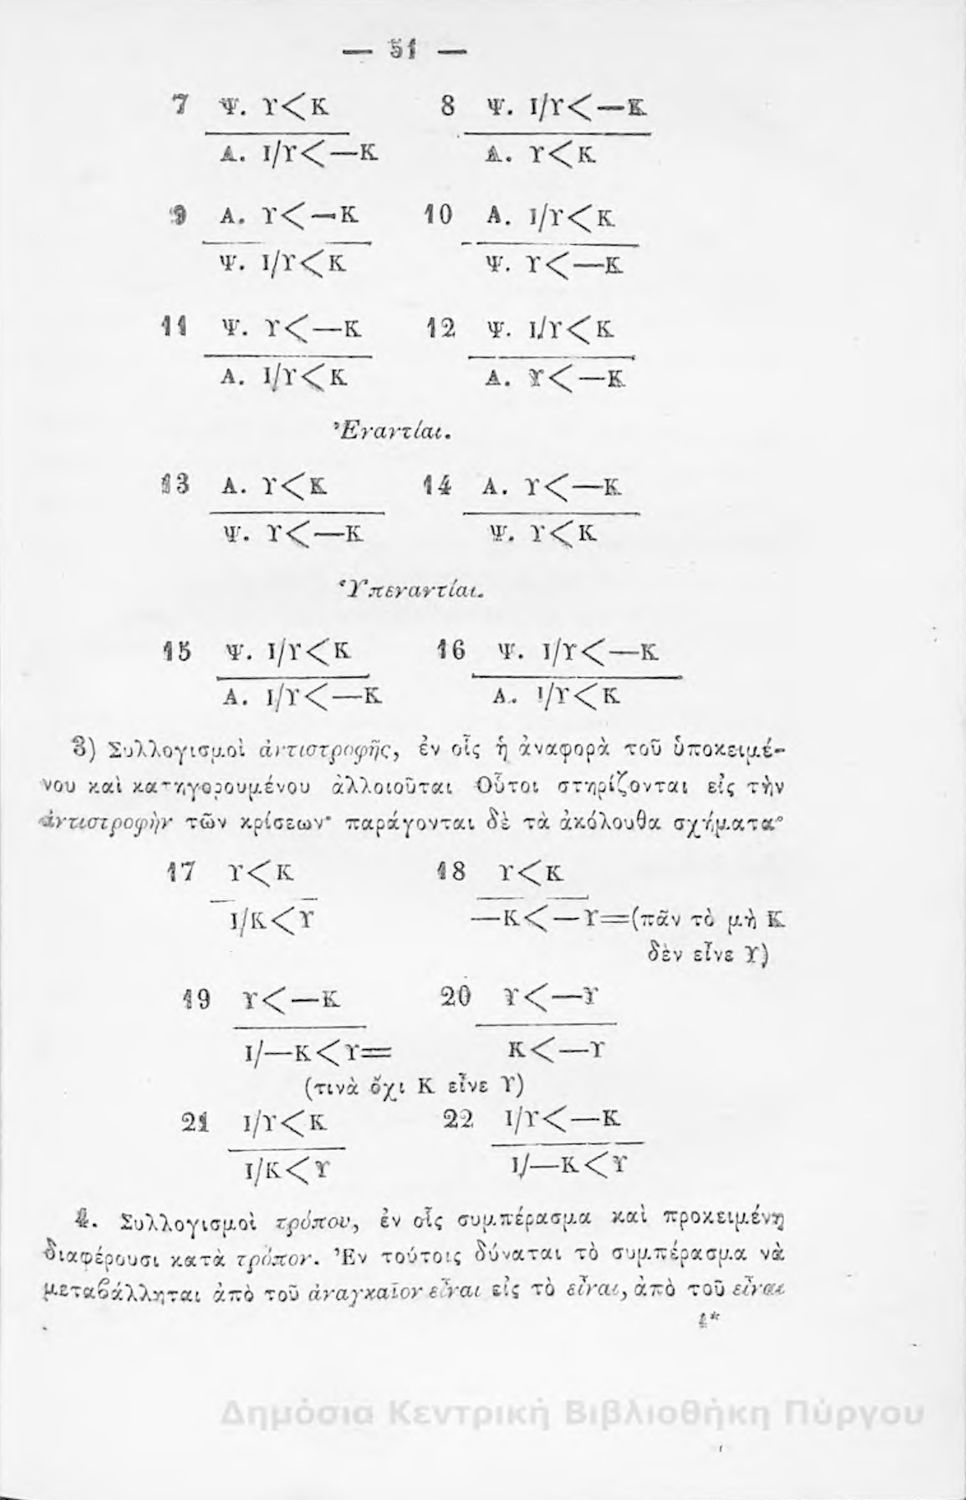 — 51 —
7 Ψ. Υ<Κ 8 Ψ. Ι/Υ<—Κ
Α. Ι/Υ<—Κ Α. Υ<Κ
9 Α. Υ<—Κ 10 Α. Ι/Υ<Κ
Ψ. Ι/Υ<Κ Ψ. Υ<—Κ
11 Ψ. Υ<—Κ 12 Ψ. Ι/Υ<Κ
Α. Ι/Υ<Κ Α. Υ<—Κ
Ἐναντίαι.
13 Α. Υ<Κ 14 Α. Υ<—Κ
Ψ. Υ<—Κ Ψ. Υ<Κ
Ὑπεναντίαι.
15 Ψ. Ι/Υ<Κ 16 Ψ. Ι/Υ<—Κ
Α. Ι/Υ<—Κ Α. Ι/Υ<Κ
3) Συλλογισμοὶ ἀντιστροφῆς, ἐν οἷς ἡ ἀναφορὰ τοῦ ὑποκειμέ-
νου καὶ κατηγορουμένου ἀλλοιοῦται Οὗτοι στηρίζονται εἰς τὴν
ἀντιστροφὴν τῶν κρίσεων· παράγονται δὲ τὰ ἀκόλουθα σχήματα·
17 Υ<Κ 18 Υ<Κ
Ι/Κ<Υ —Κ<—Υ=(πᾶν τὸ μὴ Κ
δὲν εἶνε Υ)
19 Υ<—Κ 20 Υ<—Υ
Ι/—Κ<Υ= Κ<—Υ
(τινὰ ὄχι Κ εἶνε Υ)
21 Ι/Υ<Κ 22 Ι/Υ<—Κ
Ι/Κ<Υ Ι/—Κ<Υ
4. Συλλογισμοὶ τρόπου, ἐν οἷς συμπέρασμα καὶ προκειμένη
διαφέρουσι κατὰ τρόπον. Ἐν τούτοις δύναται τὸ συμπέρασμα νὰ
μεταβάλληται ἀπὸ τοῦ ἀναγκαῖον εἶναι εἰς τὸ εἶναι, ἀπὸ τοῦ εἶναι
4*
Δημόσια Κεντρική Βιβλιοθήκη Πύργου